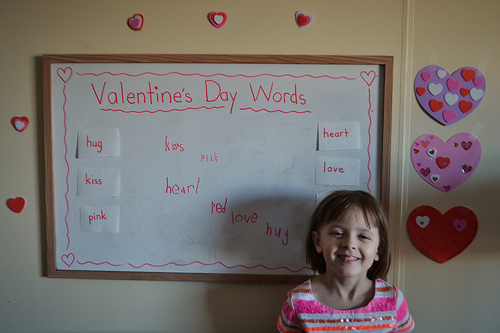 Valentine's Day Words
hug
kiss
pink
kiss
pink
heart
red
love
hug
heart
love